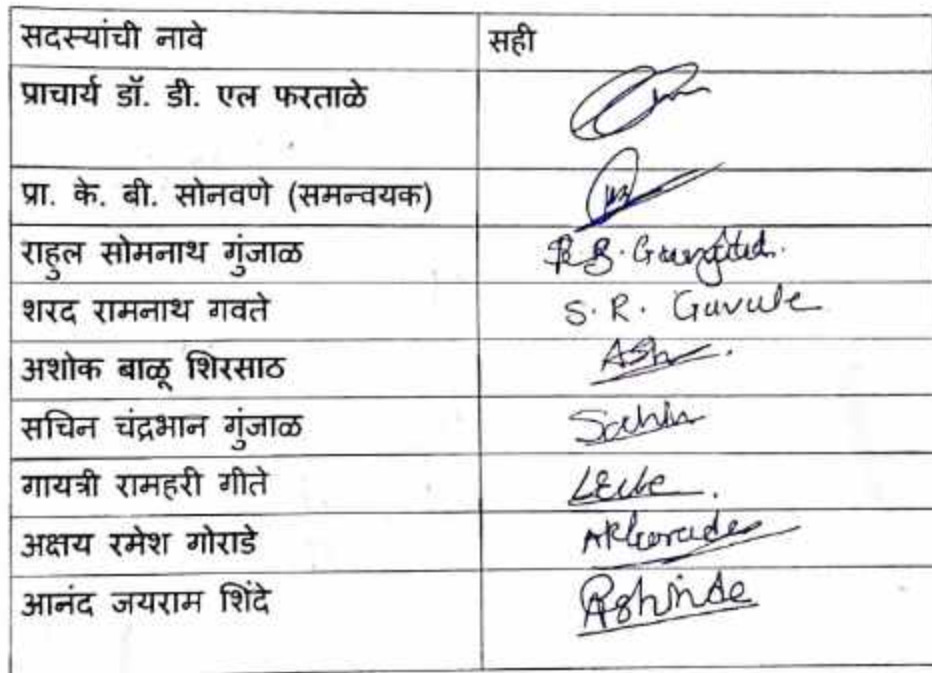 सदस्यांची नावे सही
प्राचार्य डॉ. डी. एल फरताळे
प्रा. के. बी. सोनवणे (समन्वयक)
राहुल सोमनाथ गुंजाळ
शरद रामनाथ गवते S. R. Gavule
अशोक बाळू शिरसाठ
सचिन चंद्रभान गुंजाळ Sachin
गायत्री रामहरी गीते
अक्षय रमेश गोराडे
आनंद जयराम शिंदे AShinde